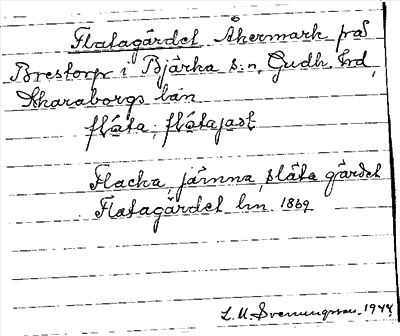 Flatagärdet Åkermark på
Brestorp i Bjärka s:n, Gudh. hrd,
Skaraborgs län
flata, flatajaSt
Flacka, jämna, släta gärdet
Flatagärdet lm 1869
L. U. Svenungsson. 1944